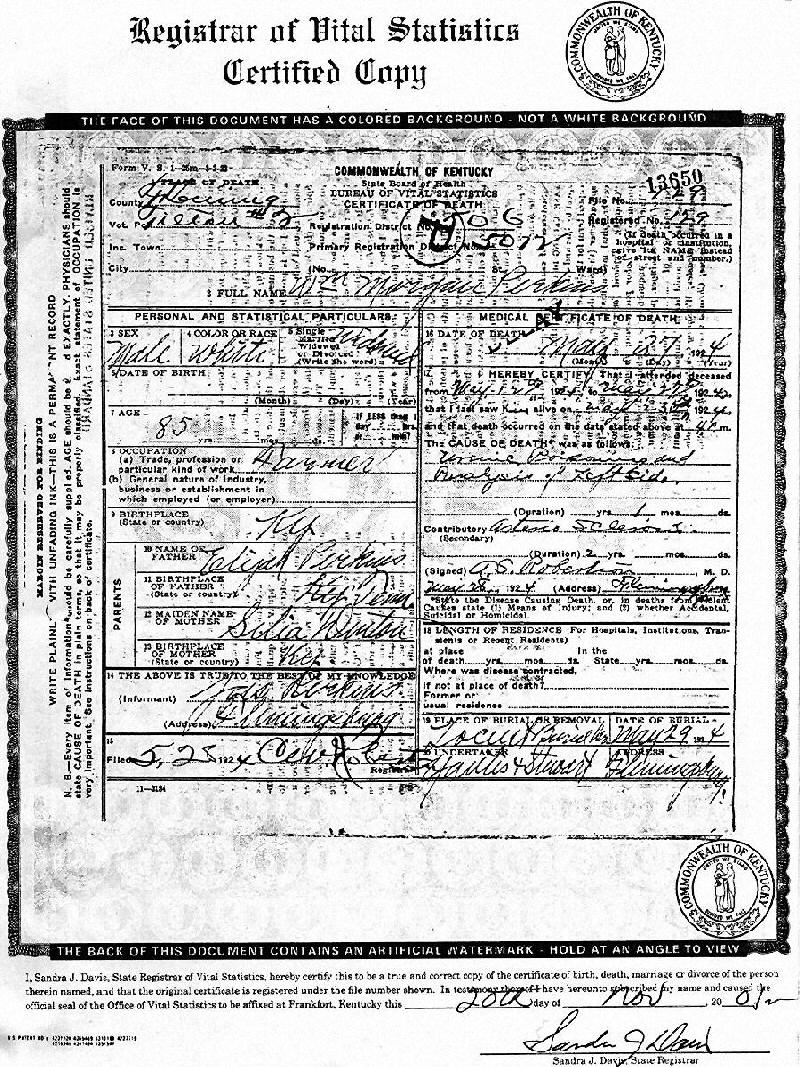 Registrar of Vital Statistics
Certified Copy
COMMONWEALTH OF KENTUCKY
THE FACE OF THIS DOCUMENT HAS A COLORED BACKGROUND - NOT A WHITE BACKGROUND
Form V. S. 1
COMMONWEALTH OF KENTUCKY
State Board of Health
BUREAU OF VITAL STATISTICS
CERTIFICATE OF DEATH
PLACE OF DEATH
County Fleming
Vot. Tilton #2
Inc. Town
City
Registration District No. 506
Primary Registration District No. 5012
(No. St. Ward)
13650
File No.
Registered No. 129
(If death occurred in a
hospital or institution,
give its NAME instead
of street and number.)
2 FULL NAME Wm Morgan Perkins
PERSONAL AND STATISTICAL PARTICULARS
3 SEX Male
4 COLOR OR RACE White
5 Single Married Widowed or Divorced (Write the word)
6 DATE OF BIRTH
(Month) (Day) (Year)
7 AGE
85 yrs. mos. ds.
8 OCCUPATION
(a) Trade, profession or
particular kind of work Farmer
(b) General nature of industry,
business or establishment in
which employed (or employer)
9 BIRTHPLACE
(State or country) Ky
PARENTS
10 NAME OF
FATHER Elijah Perkins
11 BIRTHPLACE
OF FATHER
(State or country)
12 MAIDEN NAME
OF MOTHER
13 BIRTHPLACE
OF MOTHER
(State or country) Ky
14 THE ABOVE IS TRUE TO THE BEST OF MY KNOWLEDGE
(Informant) Perkins
(Address) Flemingsburg
15
Filed 5, 28 1924 Registrar
11-3184
MEDICAL CERTIFICATE OF DEATH
16 DATE OF DEATH May 27 1924
(Month) (Day) (Year)
17 I HEREBY CERTIFY, That I attended deceased
from May 1924 to May 1924
that I last saw him alive on 1924
and that death occurred on the date stated above at m.
The CAUSE OF DEATH was as follows:
Poisoning and
Paralysis of Left Side
(Duration) yrs. 1 mos. ds.
Contributory
(Secondary)
(Duration) 2 yrs. mos. ds.
(Signed) Robertson M. D.
May 28, 1924 (Address) Flemingsburg
*State the Disease Causing Death, or, in deaths from Violent
Causes state (1) Means of Injury; and (2) whether Accidental,
Suicidal or Homicidal.
18 LENGTH OF RESIDENCE For Hospitals, Institutions, Transients or Recent Residents)
at place In the
of death yrs. mos. ds. State yrs. mos. ds.
Where was disease contracted,
if not at place of death?
Former or
usual residence
19 PLACE OF BURIAL OR REMOVAL
Locust
DATE OF BURIAL
May 29 1924
20 UNDERTAKER
ADDRESS
Flemingsburg
MARGIN RESERVED FOR BINDING
WRITE PLAINLY WITH UNFADING INK—THIS IS A PERMANENT RECORD
N. B.—Every item of information should be carefully supplied. AGE should be stated EXACTLY. PHYSICIANS should
state CAUSE OF DEATH in plain terms, so that it may be properly classified. Exact statement of OCCUPATION is
very important. See instructions on back of certificate.
COMMONWEALTH OF KENTUCKY
THE BACK OF THIS DOCUMENT CONTAINS AN ARTIFICIAL WATERMARK - HOLD AT AN ANGLE TO VIEW
I, Sandra J. Davis, State Registrar of Vital Statistics, hereby certify this to be a true and correct copy of the certificate of birth, death, marriage or divorce of the person
therein named, and that the original certificate is registered under the file number shown. In testimony thereof I have hereunto subscribed my name and caused the
official seal of the Office of Vital Statistics to be affixed at Frankfort, Kentucky this 20th day of Nov 20
Sandra J Davis
Sandra J. Davis, State Registrar